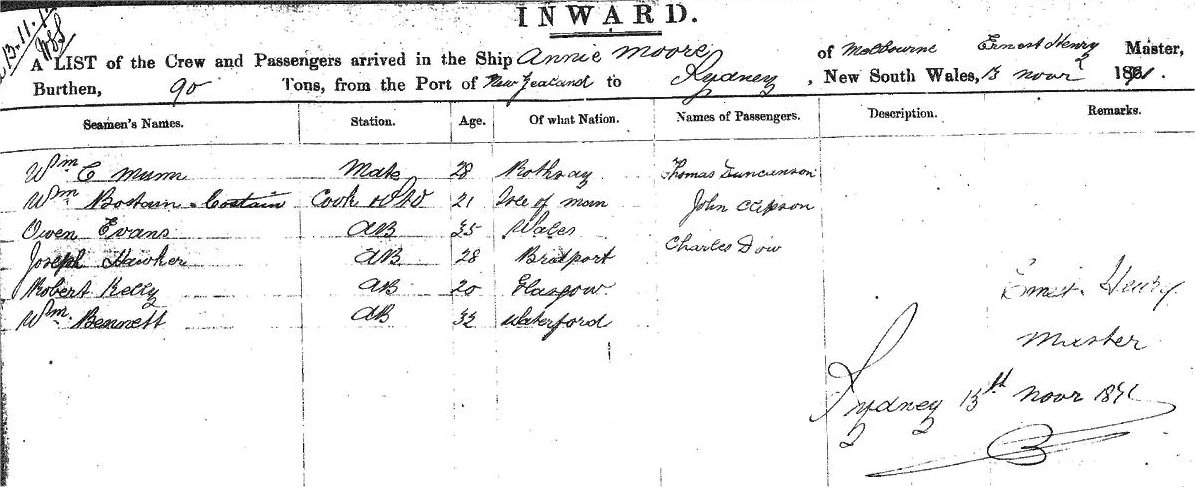 13.11.
INWARD.
A LIST of the Crew and Passengers arrived in the Ship Annie Moore of Melbourne Ernest Henry Master,
Burthen, 90 Tons, from the Port of New Zealand to Sydney, New South Wales, 13 Novr 1871.
Seamen's Names. Station. Age. Of what Nation. Names of Passengers. Description. Remarks.
Wm C Munn Mate 28 Rothsay Thomas Duncanson
Wm Bostain Costain Cook 21 Isle of man John Clipson
Owen Evans AB 35 Wales
Charles Dow
Joseph Hawker AB 28 Bridport
Robert Kelly AB 20 Glasgow
Wm. Bennett AB 32 Waterford
Ernest Henry
Master
Sydney 13th Novr 1871